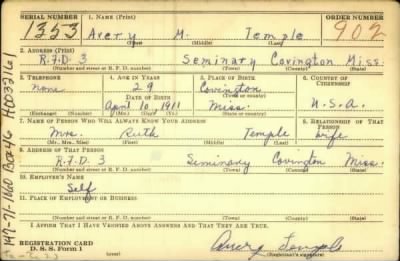 SERIAL NUMBER 1. NAME (Print) ORDER NUMBER
1353 Avery M. Temple 902
(First) (Middle) (Last)
2. ADDRESS (Print)
R.F.D 3 Seminary Covington Miss.
(Number and street or R. F. D. number) (Town) (County) (State)
3. TELEPHONE 4. AGE IN YEARS 5. PLACE OF BIRTH 6. COUNTRY OF CITIZENSHIP
None 29 Covington
DATE OF BIRTH (Town or county)
April 10, 1911 Miss. U.S.A.
(Exchange) (Number) (Mo.) (Day) (Yr.) (State or country)
7. NAME OF PERSON WHO WILL ALWAYS KNOW YOUR ADDRESS 8. RELATIONSHIP OF THAT PERSON
Mrs. Ruth Temple wife
(Mr., Mrs., Miss) (First) (Middle) (Last)
9. ADDRESS OF THAT PERSON
R.F.D. 3 Seminary Covington Miss.
(Number and street or R. F. D. number) (Town) (County) (State)
10. EMPLOYER'S NAME
Self
11. PLACE OF EMPLOYMENT OR BUSINESS
(Number and street or R. F. D. number) (Town) (County) (State)
I AFFIRM THAT I HAVE VERIFIED ABOVE ANSWERS AND THAT THEY ARE TRUE.
REGISTRATION CARD
D. S. S. Form 1 Avery Temple
(Registrant's signature)